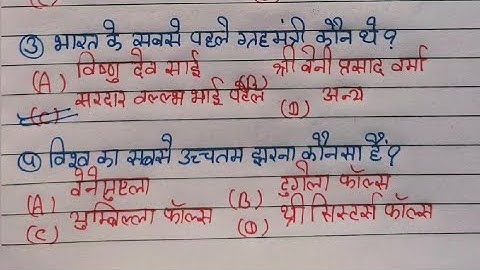 ③ भारत के सबसे पहले ग्रहमंत्री कौन थे?
(A) विष्णु देव साई श्री वेनी प्रसाद वर्मा
(C) सरदार वल्लभ भाई पटेल (D) अन्य
५ विश्व का सबसे उच्चतम झरना कौनसा है?
(A) वेनेजुएला (B) टुगैला फॉल्स
(C) युम्बिल्ला फॉल्स (D) थ्री सिस्टर्स फॉल्स